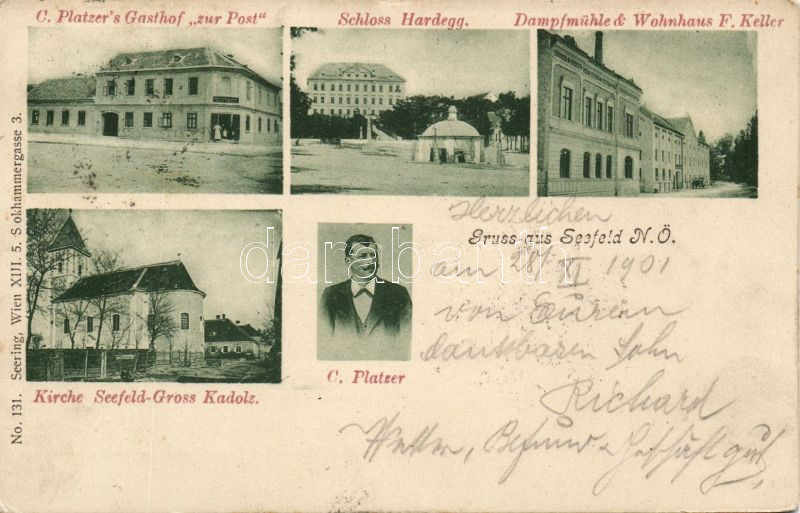 C. Platzer's Gasthof „zur Post"
Schloss Hardegg.
Dampfmühle & Wohnhaus F. Keller
No. 131. Seering, Wien XIII. 5. Stokhammergasse 3.
Herzlichen
Gruss aus Seefeld N.Ö.
am 28/XI 1901
von Eurem
dankbaren Sohn
Richard
Wetter, Befund u Geschäft gut
darabanth
C. Platzer
Kirche Seefeld-Gross Kadolz.